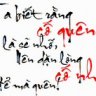 Ta biết rằng
cố quên
là sẽ nhớ
lên dặn lòng
cố nhớ
để mà quên!